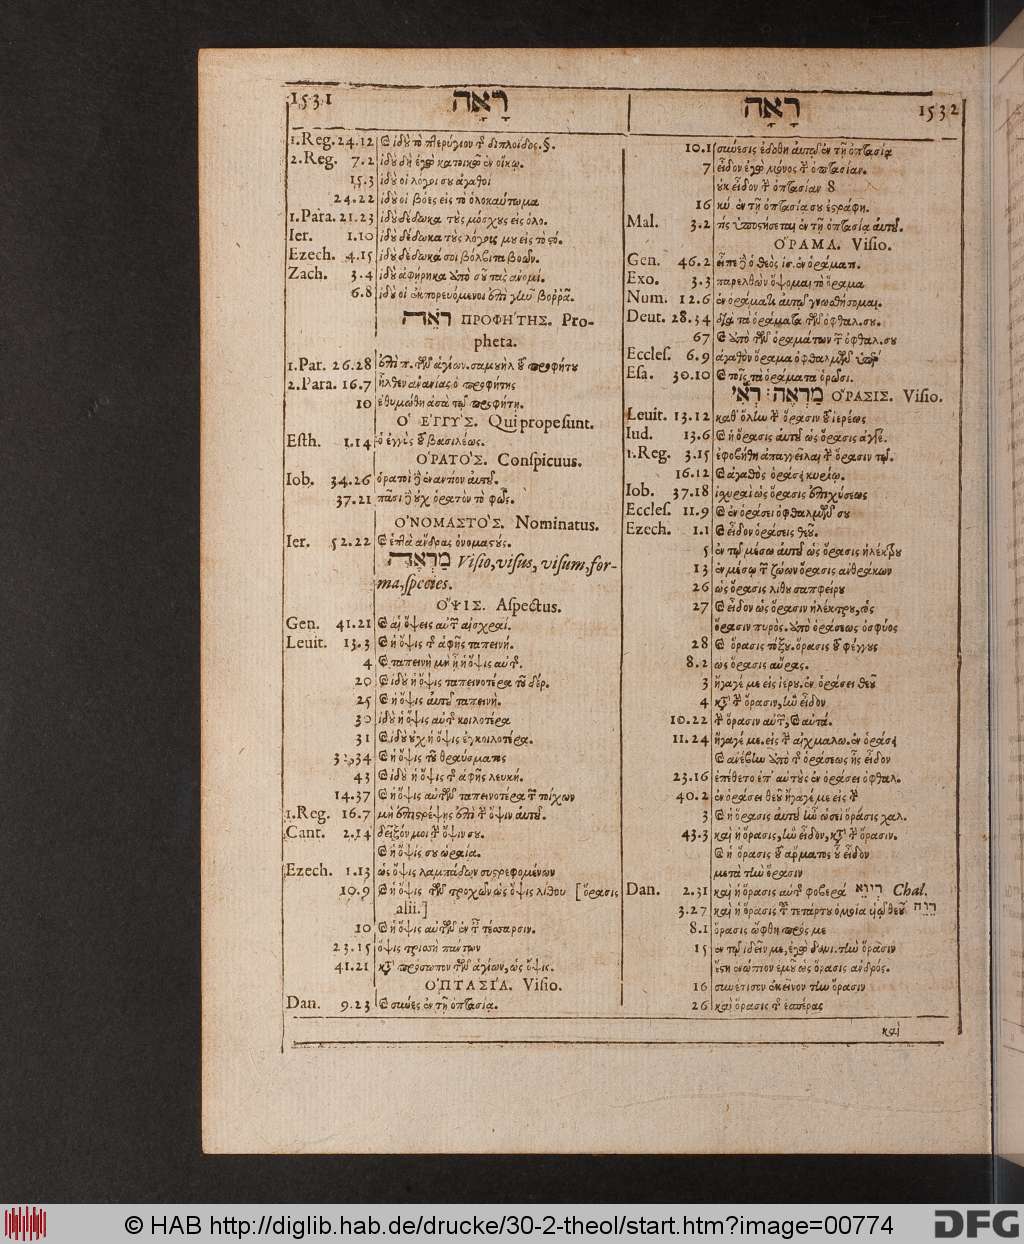 1531 רָאָה
1.Reg. 24.12 ἰδοὺ τὸ πτερύγιον τῆς διπλοΐδος. §.
2.Reg. 7.2 ἰδοὺ δὴ ἐγὼ κατοικῶ ἐν οἴκῳ.
15.3 ἰδοὺ οἱ λόγοι σου ἀγαθοὶ
24.22 ἰδοὺ οἱ βόες εἰς τὸ ὁλοκαύτωμα
1.Para. 21.23 ἰδοὺ δέδωκα τοὺς μόσχους εἰς ὁλο.
Ier. 1.10 ἰδοὺ δέδωκα τοὺς λόγους μου εἰς τὸ στό.
Ezech. 4.15 ἰδοὺ δέδωκά σοι βόλβιτα βοῶν.
Zach. 3.4 ἰδοὺ ἀφῄρηκα τὰς ἀνομί.
6.8 ἰδοὺ οἱ ἐκπορευόμενοι ἐπὶ γῆν βοῤῥᾶ.
רֹאֶה ΠΡΟΦΗΤΗΣ. Pro-
pheta.
1.Par. 26.28 τῶν ἁγίων. σαμουὴλ τοῦ προφήτου
2.Para. 16.7 ἦλθεν ἀνανίας ὁ προφήτης
10 ἐθυμώθη ἀσὰ τῷ προφήτῃ.
Ο ΕΓΓΥΣ. Qui prope sunt.
Esth. 1.14 ὁ ἐγγὺς τοῦ βασιλέως.
ΟΡΑΤΟΣ. Conspicuus.
Iob. 34.26 ὁρατοὶ ἐναντίον αὐτοῦ.
37.21 πᾶσι οὐχ ὁρατὸν τὸ φῶς.
ΟΝΟΜΑΣΤΟΣ. Nominatus.
Ier. 52.22 καὶ ἑπτὰ ἄνδρας ὀνομαστούς.
מַרְאֶה Visio, visus, visum, for-
ma, species.
ΟΨΙΣ. Aspectus.
Gen. 41.21 καὶ αἱ ὄψεις αὐτῶν αἰσχραί.
Leuit. 13.3 καὶ ἡ ὄψις τῆς ἁφῆς ταπεινή.
4 καὶ ταπεινὴ μὴ ᾖ ἡ ὄψις αὐτῆς.
20 καὶ ἰδοὺ ἡ ὄψις ταπεινοτέρα τοῦ δέρ.
25 καὶ ἡ ὄψις αὐτοῦ ταπεινή.
30 ἰδοὺ ἡ ὄψις αὐτῆς κοιλοτέρα
31 καὶ ἰδοὺ οὐχ ἡ ὄψις ἐγκοιλοτέρα.
32.34 καὶ ἡ ὄψις τοῦ θραύσματος
43 καὶ ἰδοὺ ἡ ὄψις τῆς ἁφῆς λευκή.
14.37 καὶ ἡ ὄψις αὐτῶν ταπεινοτέρα τῶν τοίχων
1.Reg. 16.7 μὴ ἐπιστρέψῃς ἐπὶ τὴν ὄψιν αὐτοῦ.
Cant. 2.14 δεῖξόν μοι τὴν ὄψιν σου.
καὶ ἡ ὄψις σου ὡραία.
Ezech. 1.13 ὡς ὄψις λαμπάδων συστρεφομένων
10.9 καὶ ἡ ὄψις τῶν τροχῶν ὡς ὄψις λίθου [ὅρασις
alii.]
10 καὶ ἡ ὄψις αὐτῶν ἐν τοῖς τέσσαρσιν.
23.15 ὄψις τρισσὴ πάντων
41.21 κατὰ πρόσωπον τῶν ἁγίων, ὡς ὄψις.
ΟΠΤΑΣΙΑ. Visio.
Dan. 9.23 καὶ σύνες ἐν τῇ ὀπτασίᾳ.
רָאָה 1532
10.1 σύνεσις ἐδόθη αὐτῷ ἐν τῇ ὀπτασίᾳ
7 εἶδον ἐγὼ μόνος τὴν ὀπτασίαν.
οὐκ εἶδον τὴν ὀπτασίαν 8
16 ἐν τῇ ὀπτασίᾳ σου ἐστράφη.
Mal. 3.2 τίς ὑποστήσεται ἐν τῇ ὀπτασίᾳ αὐτοῦ.
ΟΡΑΜΑ. Visio.
Gen. 46.2 εἶπε ὁ θεὸς ἰσ. ἐν ὁράματι.
Exo. 3.3 παρελθὼν ὄψομαι τὸ ὅραμα
Num. 12.6 ἐν ὁράματι αὐτῷ γνωσθήσομαι.
Deut. 28.34 διὰ τὰ ὁράματα τῶν ὀφθαλ. σου.
67 καὶ ὑπὸ τῶν ὁραμάτων τῶν ὀφθαλ. σου
Eccles. 6.9 ἀγαθὸν ὅραμα ὀφθαλμῶν ὑπὲρ
Esa. 30.10 καὶ τοῖς τὰ ὁράματα ὁρῶσι.
מַרְאָה: רֳאִי ΟΡΑΣΙΣ. Visio.
Leuit. 13.12 καθ᾿ ὅλην τὴν ὅρασιν τοῦ ἱερέως
Iud. 13.6 καὶ ἡ ὅρασις αὐτοῦ ὡς ὅρασις ἀγγέ.
1.Reg. 3.15 ἐφοβήθη ἀπαγγεῖλαι τὴν ὅρασιν τῷ.
16.12 καὶ ἀγαθὸς ὁράσει κυρίῳ.
Iob. 37.18 ἰσχυραὶ ὡς ὅρασις ἐπιχύσεως
Eccles. 11.9 καὶ ἐν ὁράσει ὀφθαλμῶν σου
Ezech. 1.1 καὶ εἶδον ὁράσεις θεοῦ.
5 ἐν τῷ μέσῳ αὐτοῦ ὡς ὅρασις ἠλέκτρου
13 ἐν μέσῳ τῶν ζώων ὅρασις ἀνθράκων
26 ὡς ὅρασις λίθου σαπφείρου
27 καὶ εἶδον ὡς ὅρασιν ἠλέκτρου, ὡς
ὅρασιν πυρὸς. ὑπὸ ὁράσεως ὀσφύος
28 καὶ ὅρασις τόξου. ὅρασις τοῦ φέγγους
8.2 ὡς ὅρασις αὔρας.
3 ἤγαγέ με εἰς ἱερου. ἐν ὁράσει θεοῦ
4 κατὰ τὴν ὅρασιν, ἣν εἶδον
10.22 τὴν ὅρασιν αὐτῶν, καὶ αὐτά.
11.24 ἤγαγέ με. εἰς τὴν αἰχμαλω. ἐν ὁράσει
καὶ ἀνέβην ὑπὸ τῆς ὁράσεως ἧς εἶδον
23.16 ἐπέθετο ἐπ᾿ αὐτοὺς ἐν ὁράσει ὀφθαλ.
40.2 ἐν ὁράσει θεοῦ ἤγαγέ με εἰς τὴν
3 καὶ ἡ ὅρασις αὐτοῦ ἦν ὡσεὶ ὅρασις χαλ.
43.3 καὶ ἡ ὅρασις, ἣν εἶδον, κατὰ τὴν ὅρασιν.
καὶ ἡ ὅρασις τοῦ ἅρματος οὗ εἶδον
μετὰ τὴν ὅρασιν
Dan. 2.31 καὶ ἡ ὅρασις αὐτῆς φοβερά רֵיוֵהּ Chal.
3.27 καὶ ἡ ὅρασις τοῦ τετάρτου ὁμοία υἱῷ θεοῦ רֵוֵהּ
8.1 ὅρασις ὤφθη πρός με
15 ἐν τῷ ἰδεῖν με, ἐγὼ δανι. τὴν ὅρασιν
ἔστη ἐνώπιον ἐμοῦ ὡς ὅρασις ἀνδρός.
16 συνέτισον ἐκεῖνον τὴν ὅρασιν
26 καὶ ὅρασις τῆς ἑσπέρας
καὶ
© HAB http://diglib.hab.de/drucke/30-2-theol/start.htm?image=00774
DFG